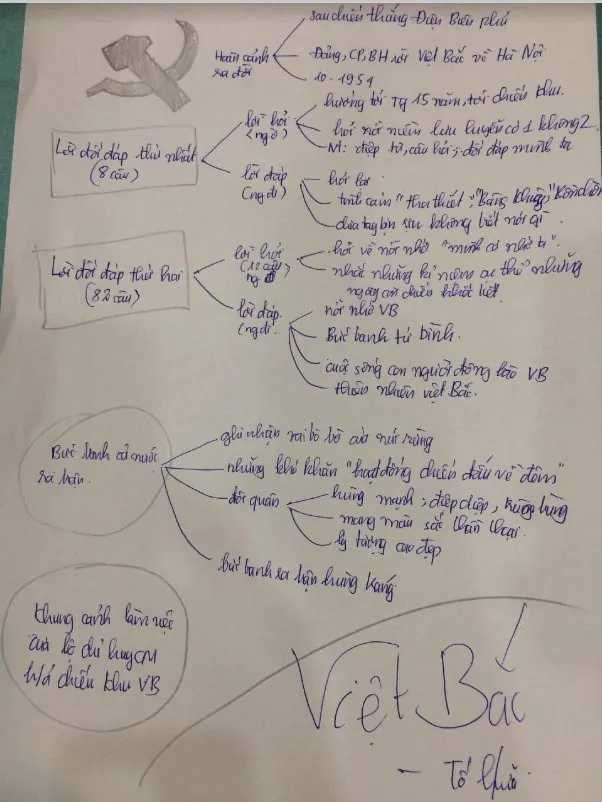 sau chiến thắng Điện Biên phủ
Hoàn cảnh
ra đời
Đảng, CP, BH rời Việt Bắc về Hà Nội
10-1954
Lời đối đáp thứ nhất
(8 câu)
lời hỏi
(ng ở)
hướng tới Tg 15 năm, tới chiến khu.
hỏi nỗi niềm lưu luyến có 1 không 2.
N: điệp từ, câu hỏi, đối đáp mình ta
lời đáp
(ng đi)
hỏi lại
tình cảm "tha thiết", "Bâng khuâng", "bồn chồn
đưa tay bịn rịn không biết nói gì
Lời đối đáp thứ hai
(82 câu)
lời hỏi
(12 câu
ng ở)
hỏi về nỗi nhớ "mình có nhớ ta".
nhắc những kỉ niệm cụ thể những
ngày chiến khốc liệt.
lời đáp.
(ng đi.
nỗi nhớ VB
Bức tranh tứ bình.
cuộc sống con người đồng bào VB
thiên nhiên việt Bắc.
Bức tranh cả nước
ra trận.
ghi nhận vai trò của núi rừng
những khó khăn "hoạt động chiến đấu về đêm"
đội quân
hùng mạnh, điệp điệp, trùng trùng
mang màu sắc thần thoại.
lý tưởng cao đẹp
bức tranh ra trận hùng tráng
khung cảnh làm việc
của bộ chỉ huy CM
h/a chiến khu VB
Việt Bắc
- Tố Hữu